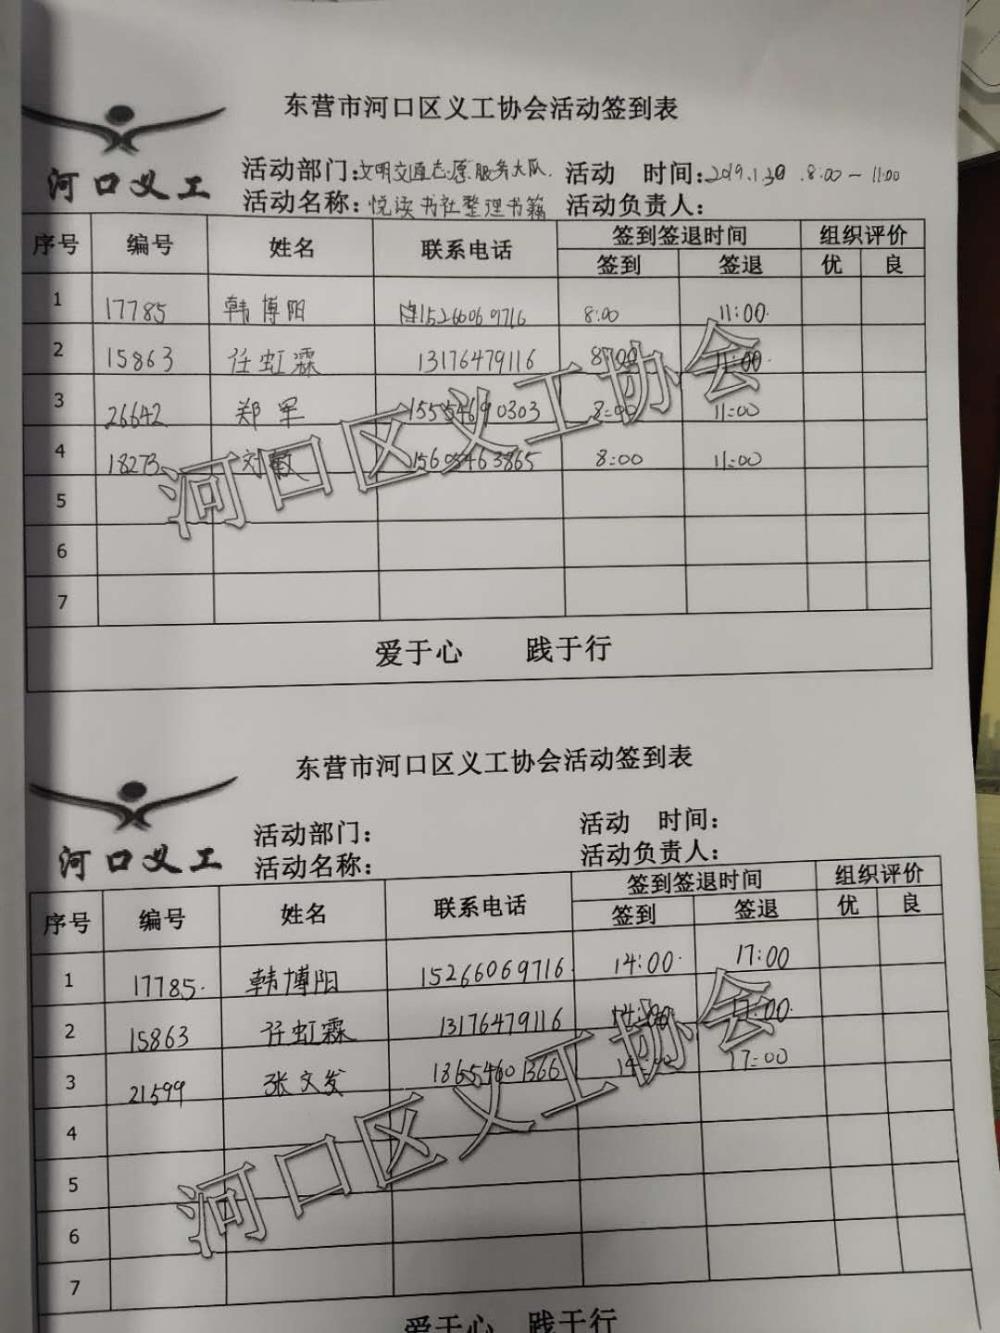 东营市河口区义工协会活动签到表
河口义工
活动部门:文明交通志愿服务大队. 活动 时间:2019.1.30 .8:00-11:00
活动名称:悦读书社整理书籍 活动负责人:
序号 编号 姓名 联系电话 签到签退时间 组织评价
签到 签退 优 良
1 17785 韩博阳 15266069716 8:00 11:00
2 15863 任虹霖 13176479116 8:00 11:00
3 26642 郑军 15554690303 8:00 11:00
4 18273 刘敏 15605463865 8:00 11:00
5
6
7
河口区义工协会
爱于心 践于行
东营市河口区义工协会活动签到表
河口义工
活动部门: 活动 时间:
活动名称: 活动负责人:
序号 编号 姓名 联系电话 签到签退时间 组织评价
签到 签退 优 良
1 17785. 韩博阳 15266069716 14:00 17:00
2 15863 任虹霖 13176479116 14:00 17:00
3 21599 张文发 18654601366 14:00 17:00
4
5
6
7
河口区义工协会
爱于心 践于行